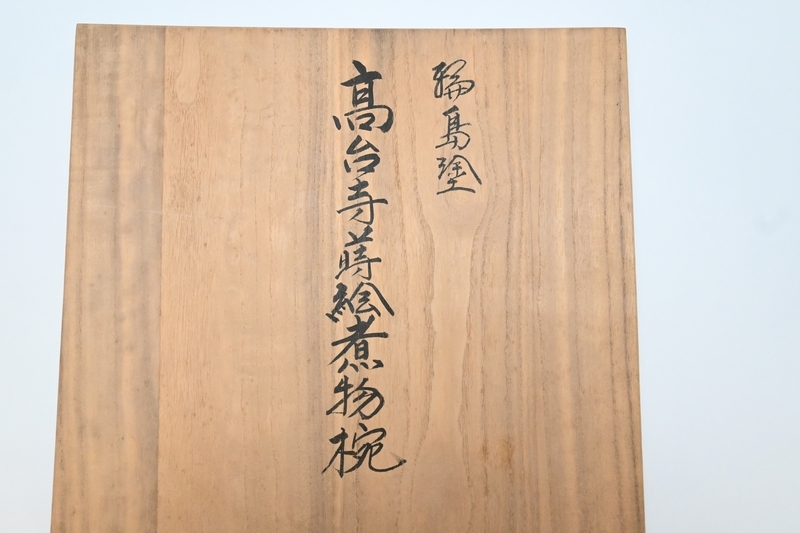 輪島塗
高台寺蒔絵煮物椀